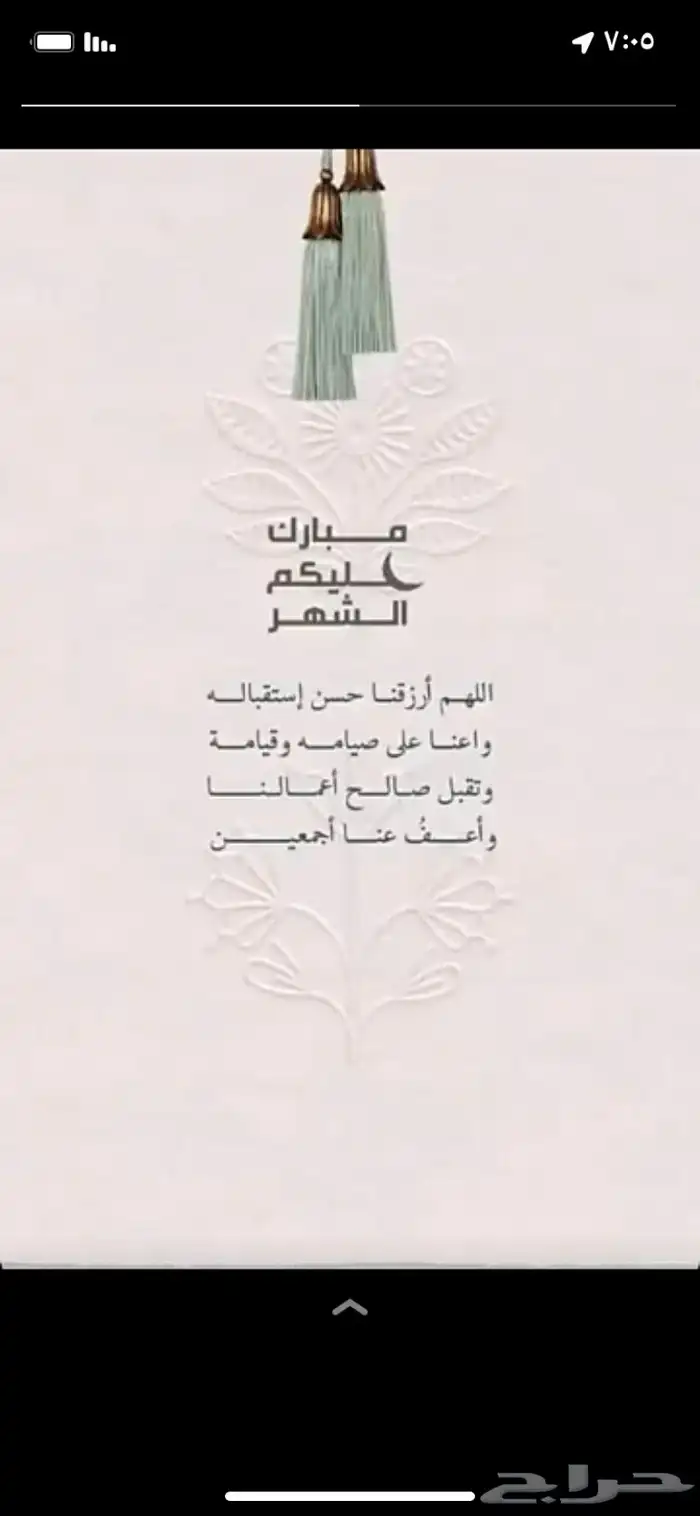 ٧:٠٥
مبارك
عليكم
الشهر
اللهم أرزقنا حسن إستقباله
واعنا على صيامه وقيامة
وتقبل صالح أعمالنا
وأعفُ عنا أجمعين
حراج